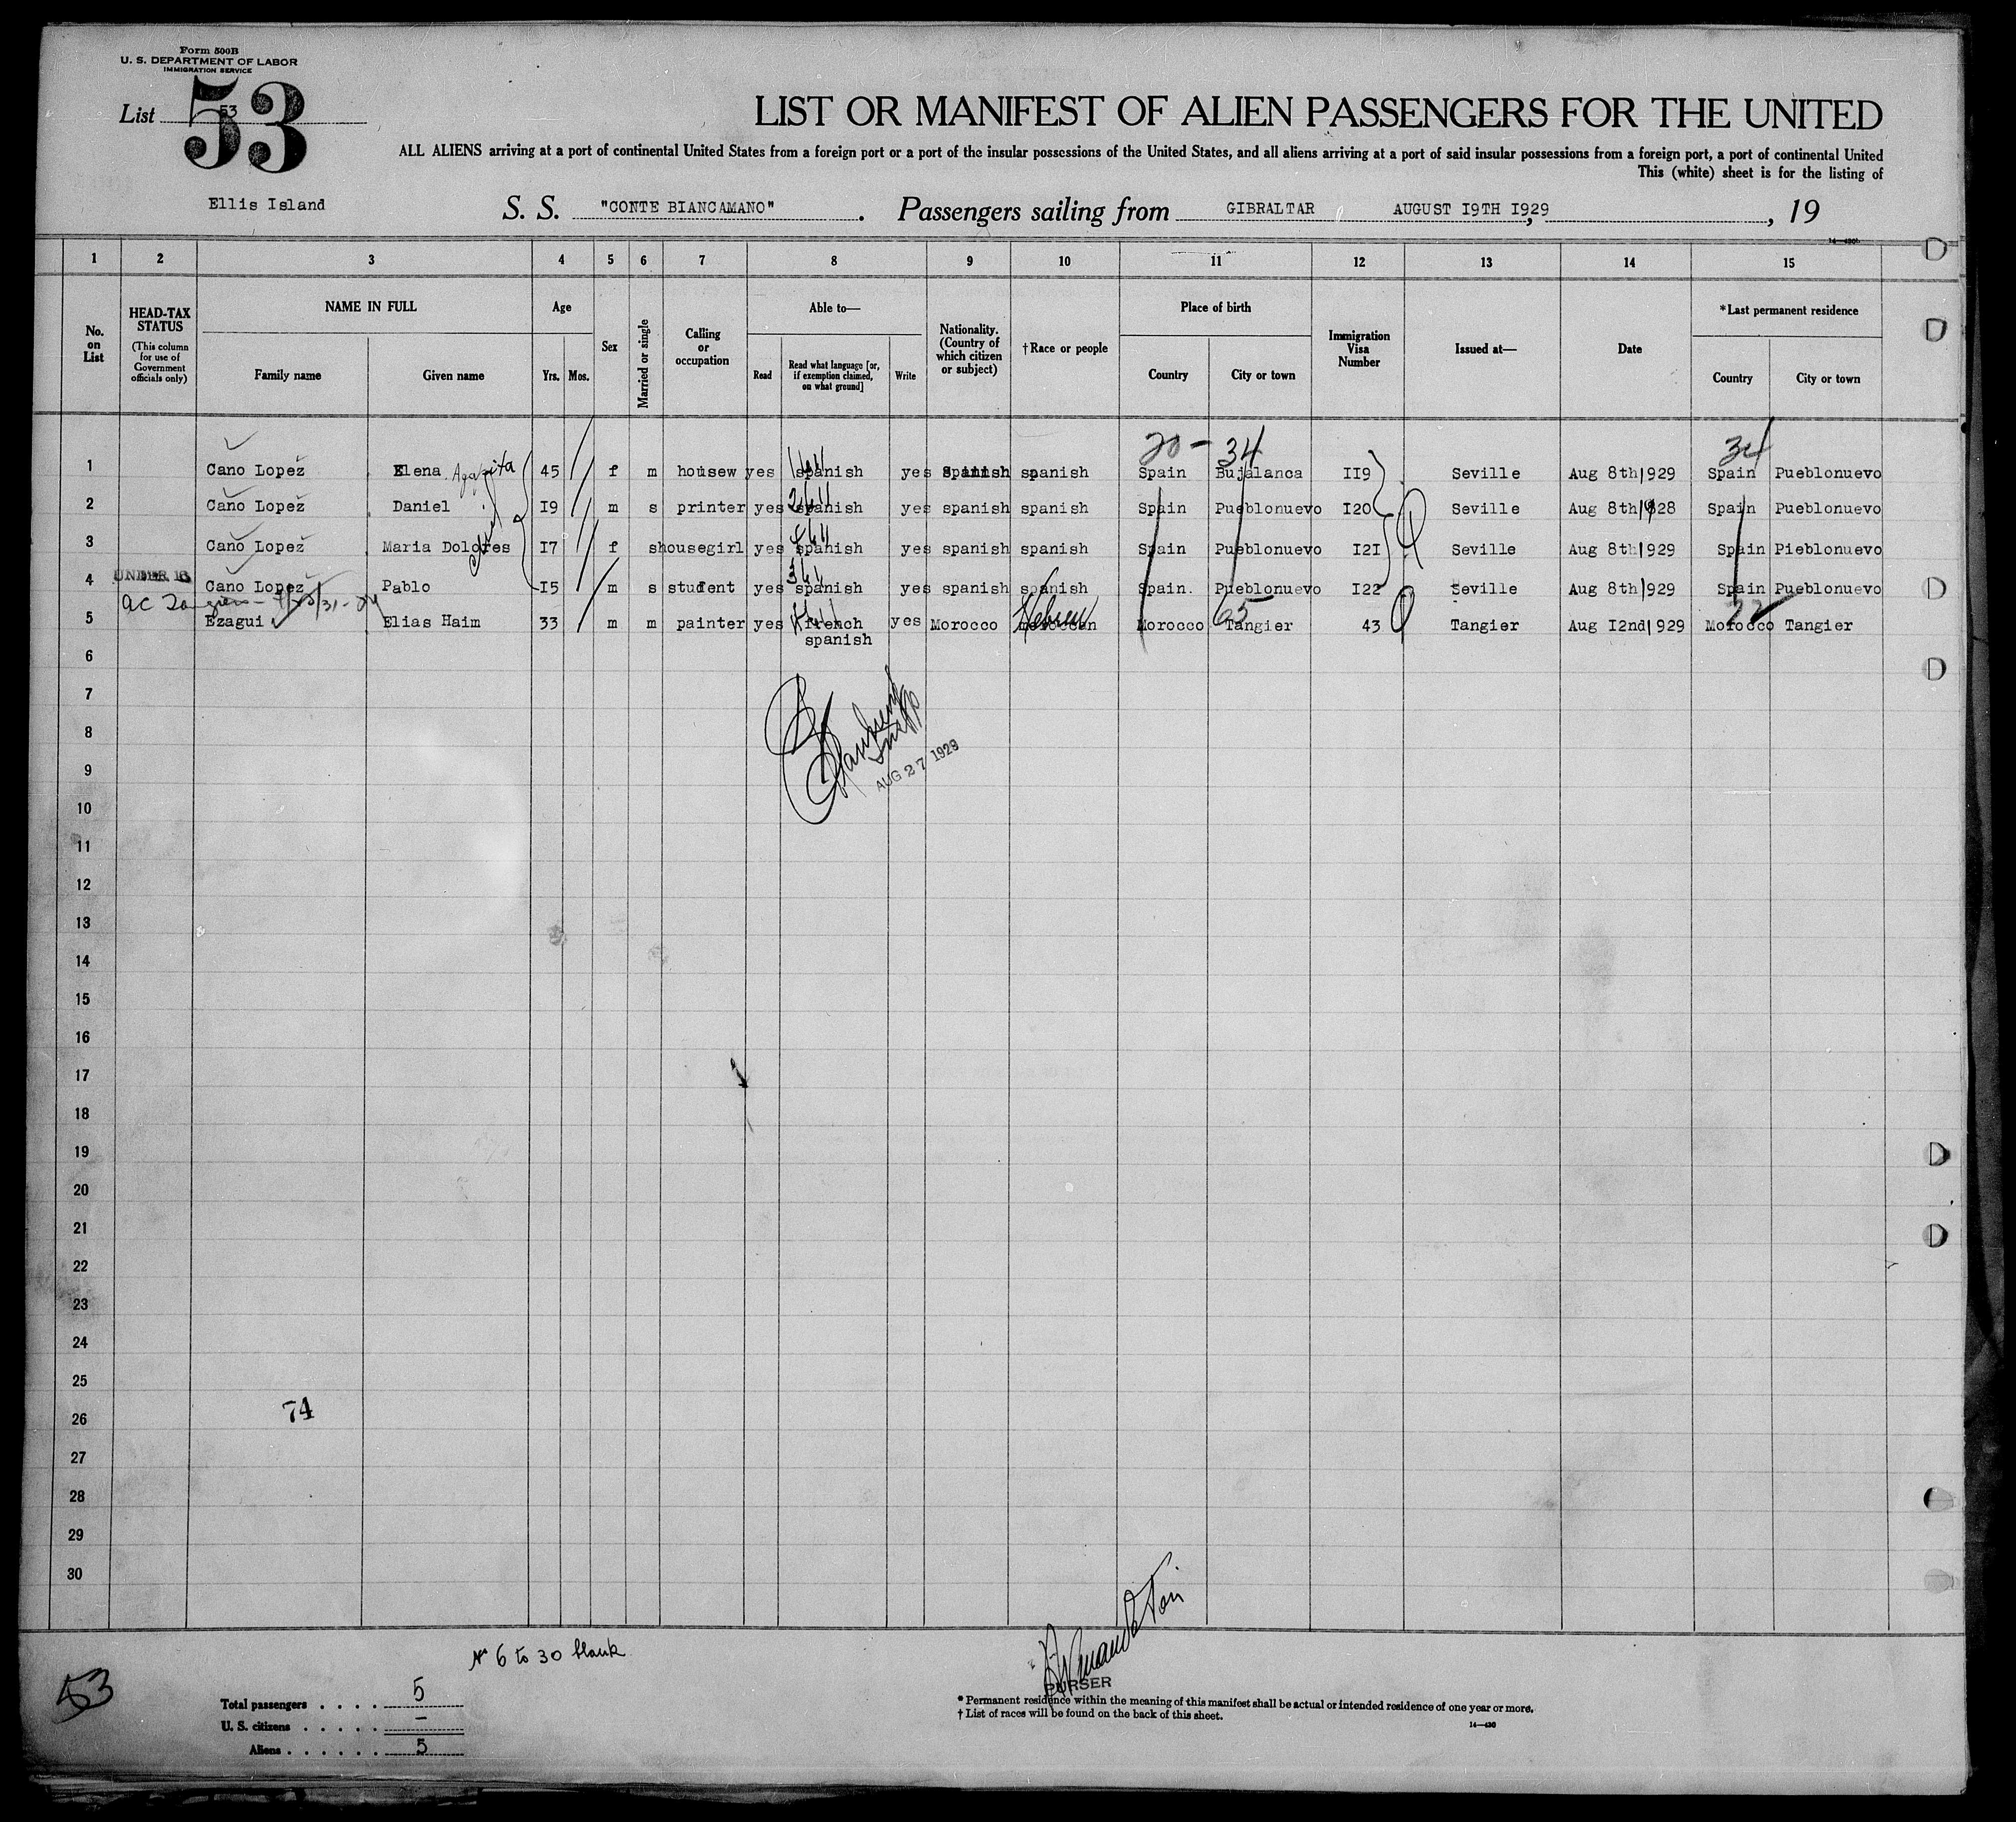 Form 500B
U. S. DEPARTMENT OF LABOR
IMMIGRATION SERVICE
List 53
53
LIST OR MANIFEST OF ALIEN PASSENGERS FOR THE UNITED
ALL ALIENS arriving at a port of continental United States from a foreign port or a port of the insular possessions of the United States, and all aliens arriving at a port of said insular possessions from a foreign port, a port of continental United
This (white) sheet is for the listing of
Ellis Island S. S. "CONTE BIANCAMANO". Passengers sailing from GIBRALTAR AUGUST I9TH I929, , 19
1 2 3 4 5 6 7 8 9 10 11 12 13 14 15
No. on List
HEAD-TAX STATUS (This column for use of Government officials only)
NAME IN FULL Family name Given name
Age Yrs. Mos.
Sex
Married or single
Calling or occupation
Able to— Read Read what language [or, if exemption claimed, on what ground] Write
Nationality. (Country of which citizen or subject)
†Race or people
Place of birth Country City or town
Immigration Visa Number
Issued at—
Date
*Last permanent residence Country City or town
20 - 34 34
1 Cano Lopez Elena Agapita 45 f m housew yes spanish yes spanish spanish Spain Bujalanca II9 Seville Aug 8th 1929 Spain Pueblonuevo
2 Cano Lopez Daniel I9 m s printer yes spanish yes spanish spanish Spain Pueblonuevo I20 Seville Aug 8th 1928 Spain Pueblonuevo
3 Cano Lopez Maria Dolores I7 f s housegirl yes spanish yes spanish spanish Spain Pueblonuevo I2I Seville Aug 8th 1929 Spain Pieblonuevo
UNDER 16
4 Cano Lopez Pablo I5 m s student yes spanish yes spanish spanish Spain. Pueblonuevo I22 Seville Aug 8th 1929 Spain Pueblonuevo
5 Ezagui Elias Haim 33 m m painter yes french yes Morocco Hebrew Morocco 65 Tangier 43 Tangier Aug I2nd 1929 Morocco Tangier
spanish
6
7
8
9
AUG 27 1929
10
11
12
13
14
15
16
17
18
19
20
21
22
23
24
25
26
74
27
28
29
30
Nº 6 to 30 blank
53
PURSER
Total passengers . . . . 5
U. S. citizens . . . . . –
Aliens . . . . . . 5
* Permanent residence within the meaning of this manifest shall be actual or intended residence of one year or more.
† List of races will be found on the back of this sheet.
14—430